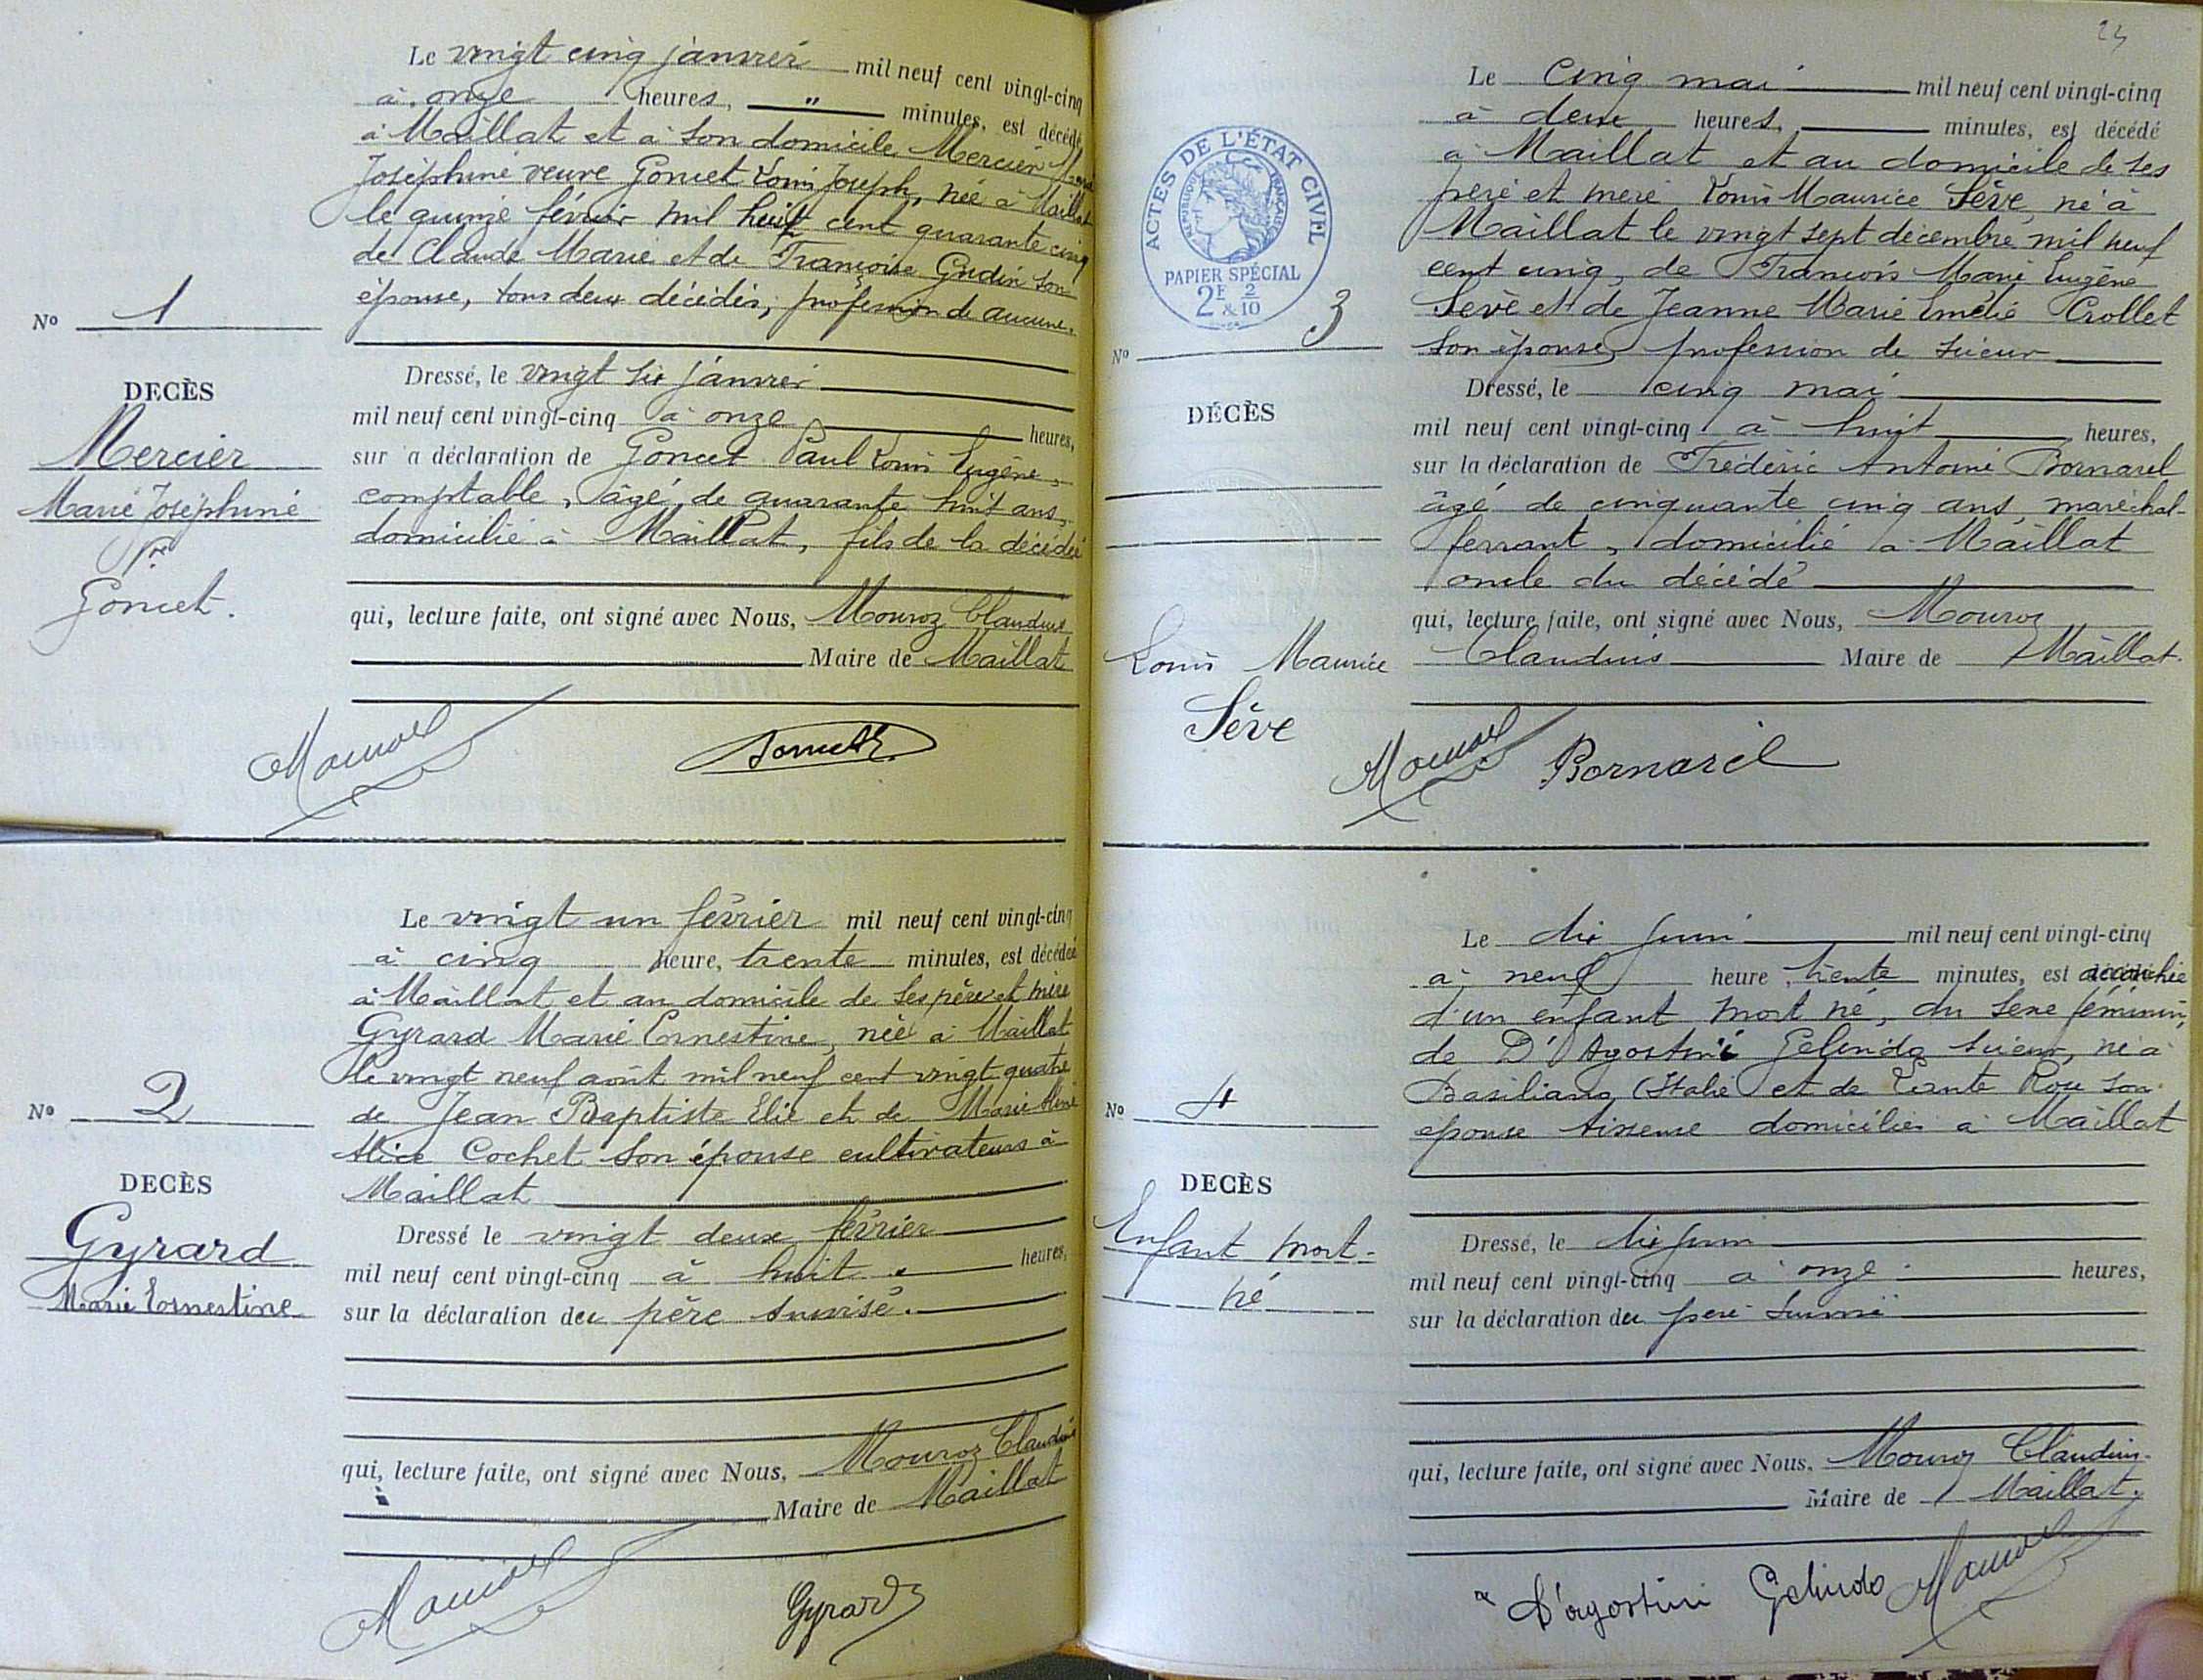 Le vingt cinq janvier mil neuf cent vingt-cinq
à onze heures, " minutes, est décédée
à Maillat et à son domicile Mercier Marie
Joséphine veuve Goncet Louis Joseph, née à Maillat
le quinze février mil huit cent quarante cinq
de Claude Marie et de Françoise Gudin son
épouse, tous deux décédés, profession de aucune.
No 1
DECÈS
Mercier
Marie Joséphine
Vve
Goncet.
Dressé, le vingt six janvier
mil neuf cent vingt-cinq à onze heures,
sur a déclaration de Goncet Paul Louis Eugène,
comptable, âgé de quarante huit ans,
domicilié à Maillat, fils de la décédée
qui, lecture faite, ont signé avec Nous, Mouroz Claudius
Maire de Maillat
Mouroz Goncet
Le vingt un février mil neuf cent vingt-cinq
à cinq heure, trente minutes, est décédée
à Maillat et au domicile de ses père et mère
Gyrard Marie Ernestine, née à Maillat
le vingt neuf août mil neuf cent vingt quatre
de Jean Baptiste Elie et de Marie
Alice Cochet son épouse cultivateurs à
Maillat
No 2
DECÈS
Gyrard
Marie Ernestine
Dressé le vingt deux février
mil neuf cent vingt-cinq à huit heures,
sur la déclaration du père susvisé.
qui, lecture faite, ont signé avec Nous, Mouroz Claudius
Maire de Maillat
Mouroz Gyrard
Le cinq mai mil neuf cent vingt-cinq
à deux heures, minutes, est décédé
à Maillat et au domicile de ses
père et mère Louis Maurice Sève, né à
Maillat le vingt sept décembre mil neuf
cent cinq, de François Marie Eugène
Sève et de Jeanne Marie Emélie Crollet
son épouse, profession de scieur
ACTES DE L'ÉTAT CIVIL
RÉPUBLIQUE FRANÇAISE
PAPIER SPÉCIAL
2F 2
&10
No 3
DÉCÈS
Louis Maurice
Sève
Dressé, le cinq mai
mil neuf cent vingt-cinq à huit heures,
sur la déclaration de Frédéric Antoine Bornarel
âgé de cinquante cinq ans, maréchal-
ferrant, domicilié à Maillat
oncle du décédé
qui, lecture faite, ont signé avec Nous, Mouroz
Claudius Maire de Maillat.
Mouroz Bornarel
Le dix juin mil neuf cent vingt-cinq
à neuf heure, trente minutes, est accouchée
d'un enfant mort né, du sexe féminin,
de D'Agostini Gelindo scieur, né à
Basiliano (Italie) et de Rose son
épouse tisseuse domiciliés à Maillat
No 4
DECÈS
Enfant mort-
né
Dressé, le dix juin
mil neuf cent vingt-cinq à onze heures,
sur la déclaration du père susvisé
qui, lecture faite, ont signé avec Nous, Mouroz Claudius
Maire de Maillat.
D'agostini Gelindo Mouroz